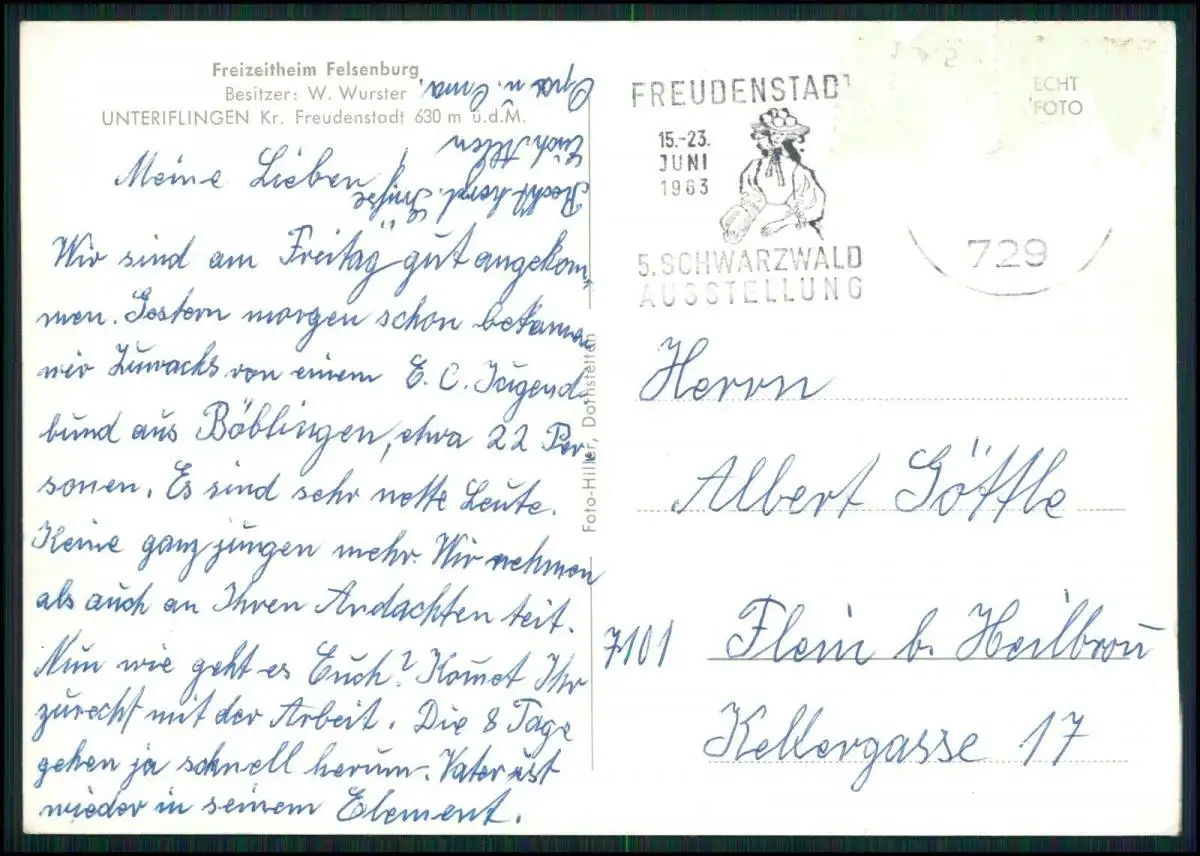 Freizeitheim Felsenburg
Besitzer: W. Wurster
UNTERIFLINGEN Kr. Freudenstadt 630 m ü.d.M.
Meine Lieben!
Wir sind am Freitag gut angekom-
men. Gestern morgen schon bekamen
wir Zuwachs von einem E. C. Jugend-
bund aus Böblingen, etwa 22 Per-
sonen. Es sind sehr nette Leute.
Keine ganz jungen mehr. Wir nehmen
als auch an Ihren Andachten teit.
Nun wie geht es Euch? Komet Ihr
zurecht mit der Arbeit. Die 8 Tage
gehen ja schnell herum. Vater ist
wieder in seinem Element.
Recht herzl. Grüsse
Euch Allen
Opa u. Oma.
Foto-Hiller, Dornstetten
FREUDENSTADT
15.-23.
JUNI
1963
5. SCHWARZWALD
AUSSTELLUNG
729
ECHT
FOTO
Herrn
Albert Göttle
7101 Flein b. Heilbronn
Kellergasse 17